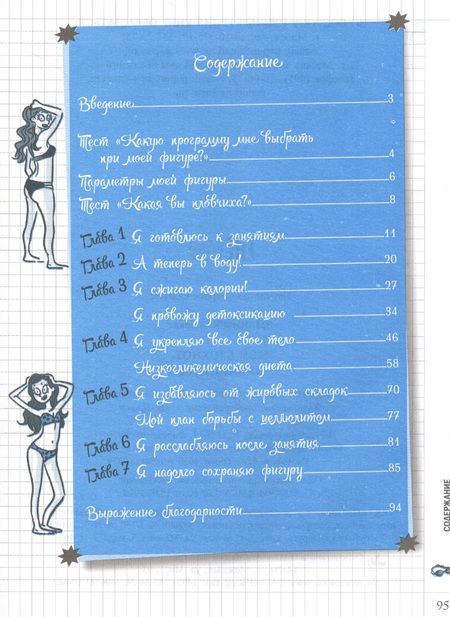 Содержание
Введение 3
Тест «Какую программу мне выбрать
при моей фигуре?» 4
Параметры моей фигуры 6
Тест «Какая вы пловчиха?» 8
Глава 1 Я готовлюсь к занятиям 11
Глава 2 А теперь в воду! 20
Глава 3 Я сжигаю калории! 27
Я провожу детоксикацию 34
Глава 4 Я укрепляю все свое тело 46
Низкогликемическая диета 58
Глава 5 Я избавляюсь от жировых складок 70
Мой план борьбы с целлюлитом 77
Глава 6 Я расслабляюсь после занятия 81
Глава 7 Я надолго сохраняю фигуру 85
Выражение благодарности 94
СОДЕРЖАНИЕ
95